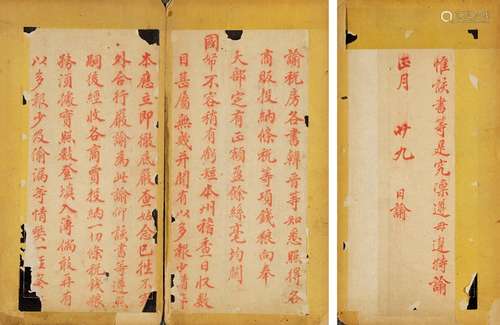 諭稅房各書韓晉等知悉照得各
商販投納條稅等項錢粮向奉
大部定有正額盈餘絲毫均關
國帑不容稍有虧短本州稽查日收數
目甚屬無幾并聞有以多報少情事
本應立即徹底嚴查姑念已往不究
外合行嚴諭為此諭仰該書等遵照
嗣後經收各商賈投納一切條稅錢粮
務須據實照數登填入簿倘敢再有
以多報少及偷漏等情弊一至查
惟該書等是究凜遵毋違特諭
正月 廿九 日諭